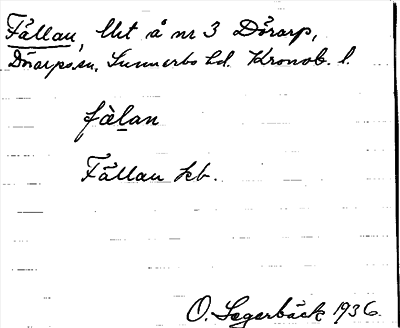 Fållan, lht å nr 3 Dörarp,
Dörarps sn. Sunnerbo hd. Kronob. l.
fålan
Fållan kb.
O. Segerbäck 1936.